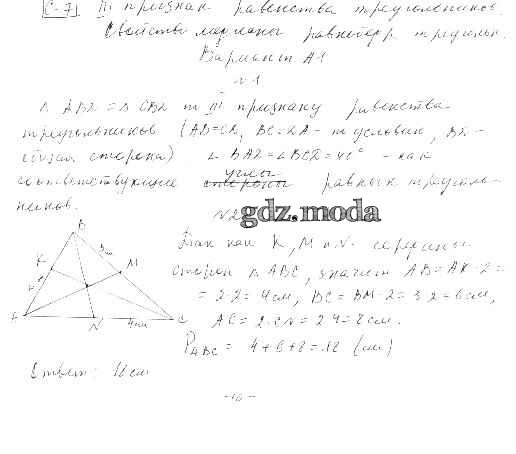 С-7 III признак равенства треугольников.
Свойство медианы равнобедр. треугольн.
Вариант А1
№1
△ АВD = △ СВD по III признаку равенства
треугольников (AB=CD, BC=DA - по условию, BD -
общая сторона) ∠ BAD = ∠ BCD = 40° - как
соответствующие стороны углы равных треуголь-
ников.
№2
gdz.moda
Так как K, M и N - середины
сторон △ ABC, значит AB = AK · 2 =
= 2 · 2 = 4 см, BC = BM · 2 = 3 · 2 = 6 см,
AC = 2 · CN = 2 · 4 = 8 см.
P ABC = 4 + 6 + 8 = 18 (см)
B
3см
K
M
A
N
4см
C
Ответ: 18 см
- 16 -